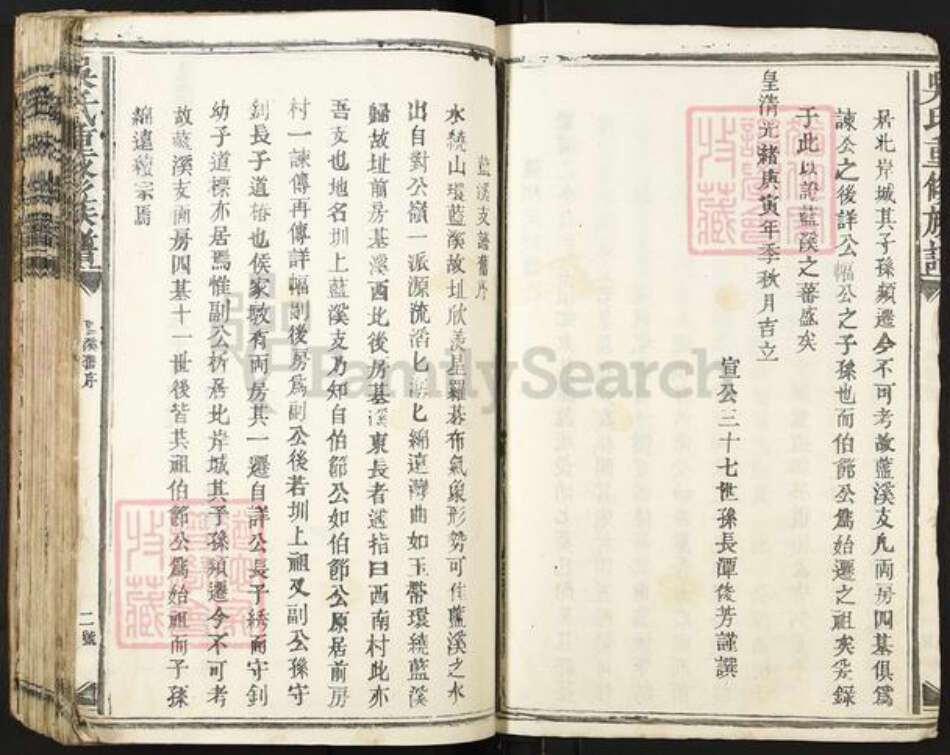 吳氏重修族譜
居北岸城其子孫頻遷今不可考故藍溪支凡兩房四基俱爲
諫公之後詳公幅公之子孫也而伯節公爲始遷之祖矣妥錄
于此以誌藍溪之蕃盛矣
皇清光緒庚寅年季秋月吉立
宣公三十七世孫長潭俊芳謹譔
藍溪支譜舊序
水繞山環藍溪故址欣羡星羅碁布氣象形勢可佳藍溪之水
出自對公嶺一派源流滔匕瀰匕綿遠灣曲如玉帶環繞藍溪
歸故址前房基溪西北後房基溪東長者遙指曰西南村此亦
吾支也地名圳上藍溪支乃知自伯節公如伯節公原居前房
村一諫傳再傳詳幅則後房爲副公後若圳上祖又副公孫守
釗長子道椿也侯家墩有兩房其一遷自詳公長子綉而守釗
幼子道標亦居焉惟副公析居北岸城其子孫頻遷今不可考
故藍溪支兩房四基十一世後皆其祖伯節公爲始祖而子孫
綿遠績宗焉
吳氏重修族譜
藍溪舊序
二號
FamilySearch